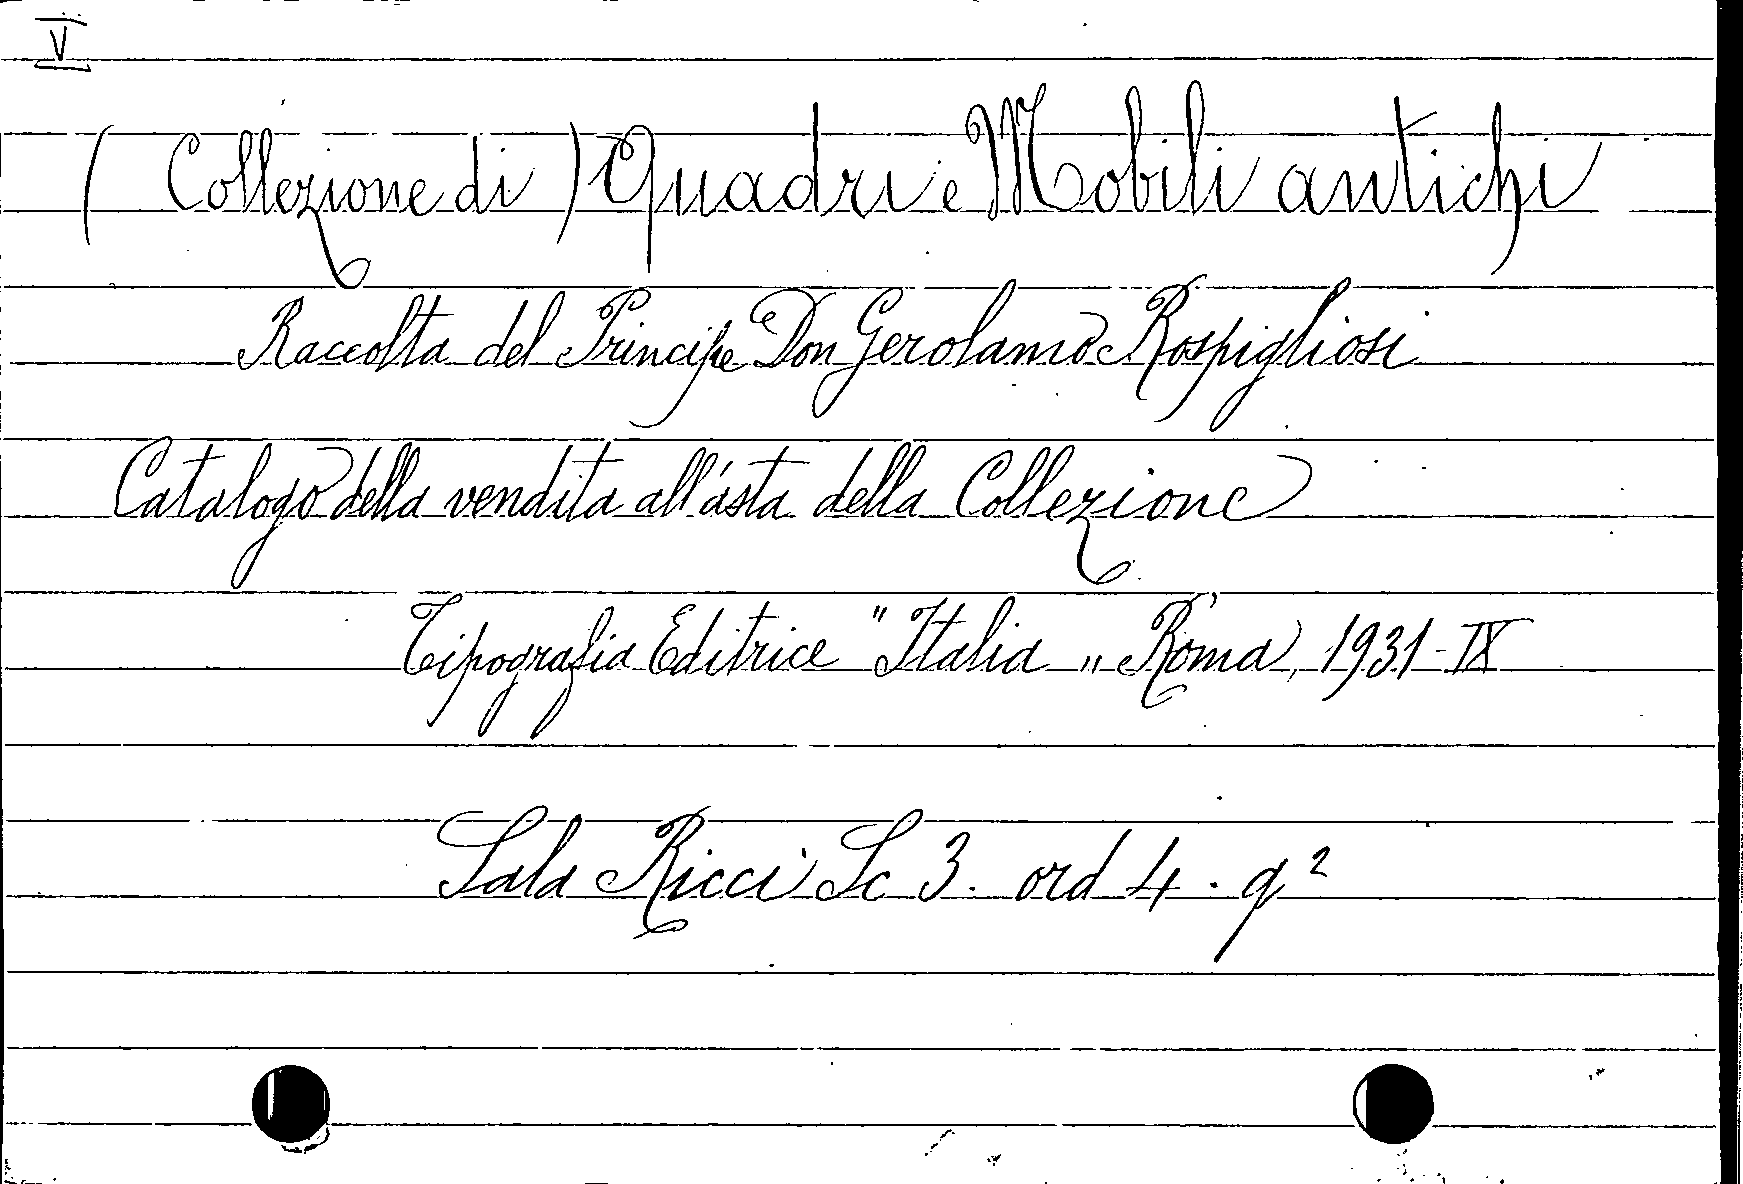 V
(Collezione di) Quadri e Mobili antichi
Raccolta del Principe Don Gerolamo Rospigliosi
Catalogo della vendita all'asta della Collezione
Tipografia Editrice "Italia„ Roma, 1931-IX
Sala Ricci Sc 3. ord 4. q 2